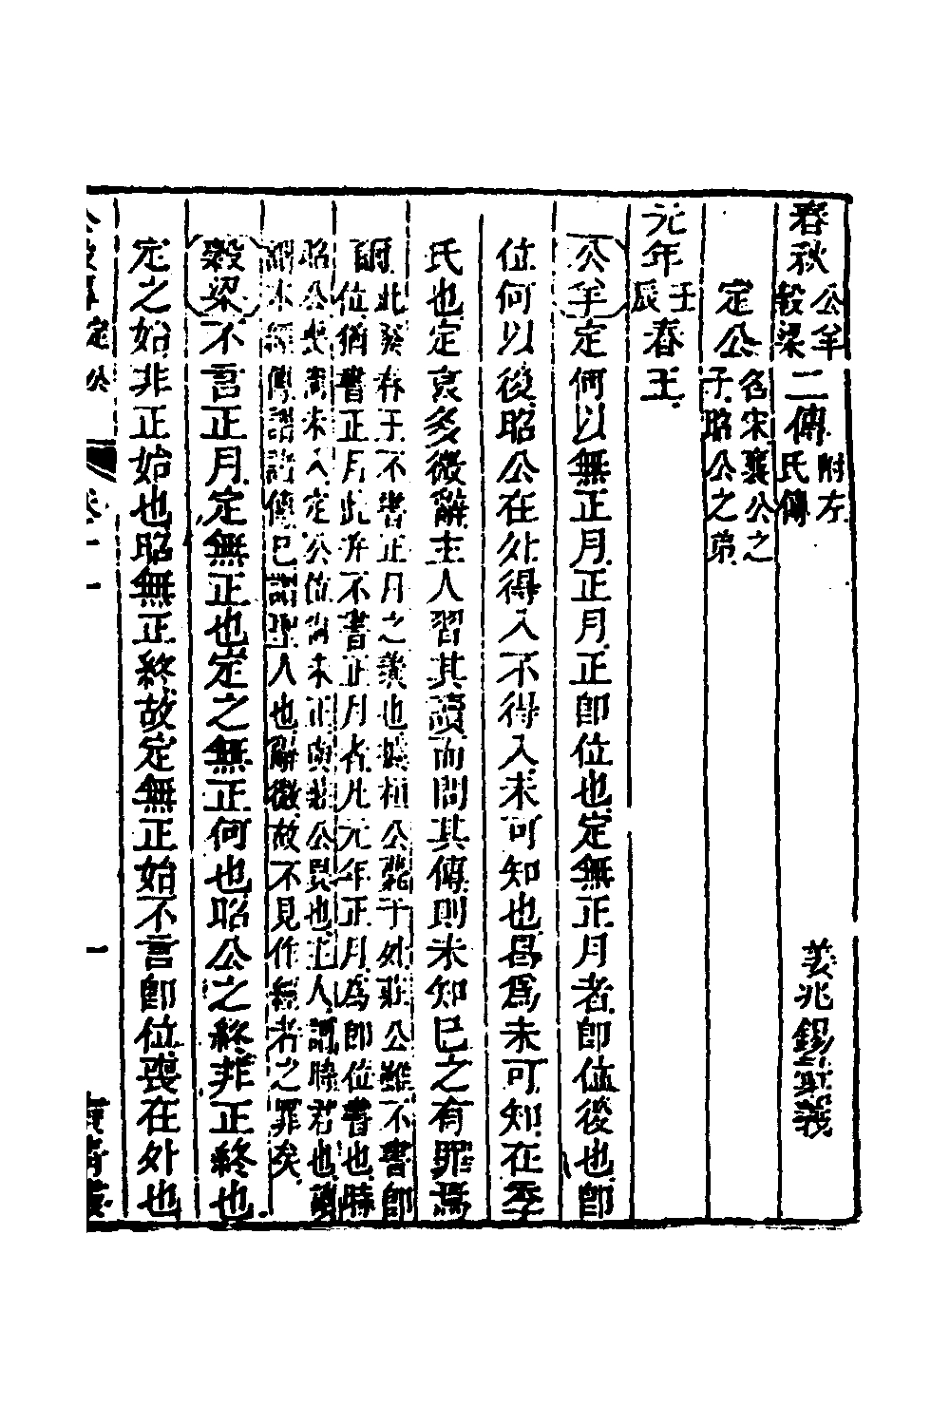 春秋公羊穀梁二傳附左氏傳 姜兆錫彚義
定公名宋襄公之子昭公之弟
元年壬辰春王
公羊定何以無正月正月正即位也定無正月者即位後也即
位何以後昭公在外得入不得入未可知也曷爲未可知在季
氏也定哀多微辭主人習其讀而問其傳則未知已之有罪焉
爾此發春于不書正月之義也據桓公薨于外莊公雖不書即
位猶書正月此并不書正月者凡元年正月為即位書也時
昭公喪尚未入定公位尚未正與莊公異也主人謂時君也讀
謂本經傳謂詁傳已謂聖人也辭微故不見作經者之罪矣
穀梁不言正月定無正也定之無正何也昭公之終非正終也
定之始非正始也昭無正終故定無正始不言即位喪在外也
定公